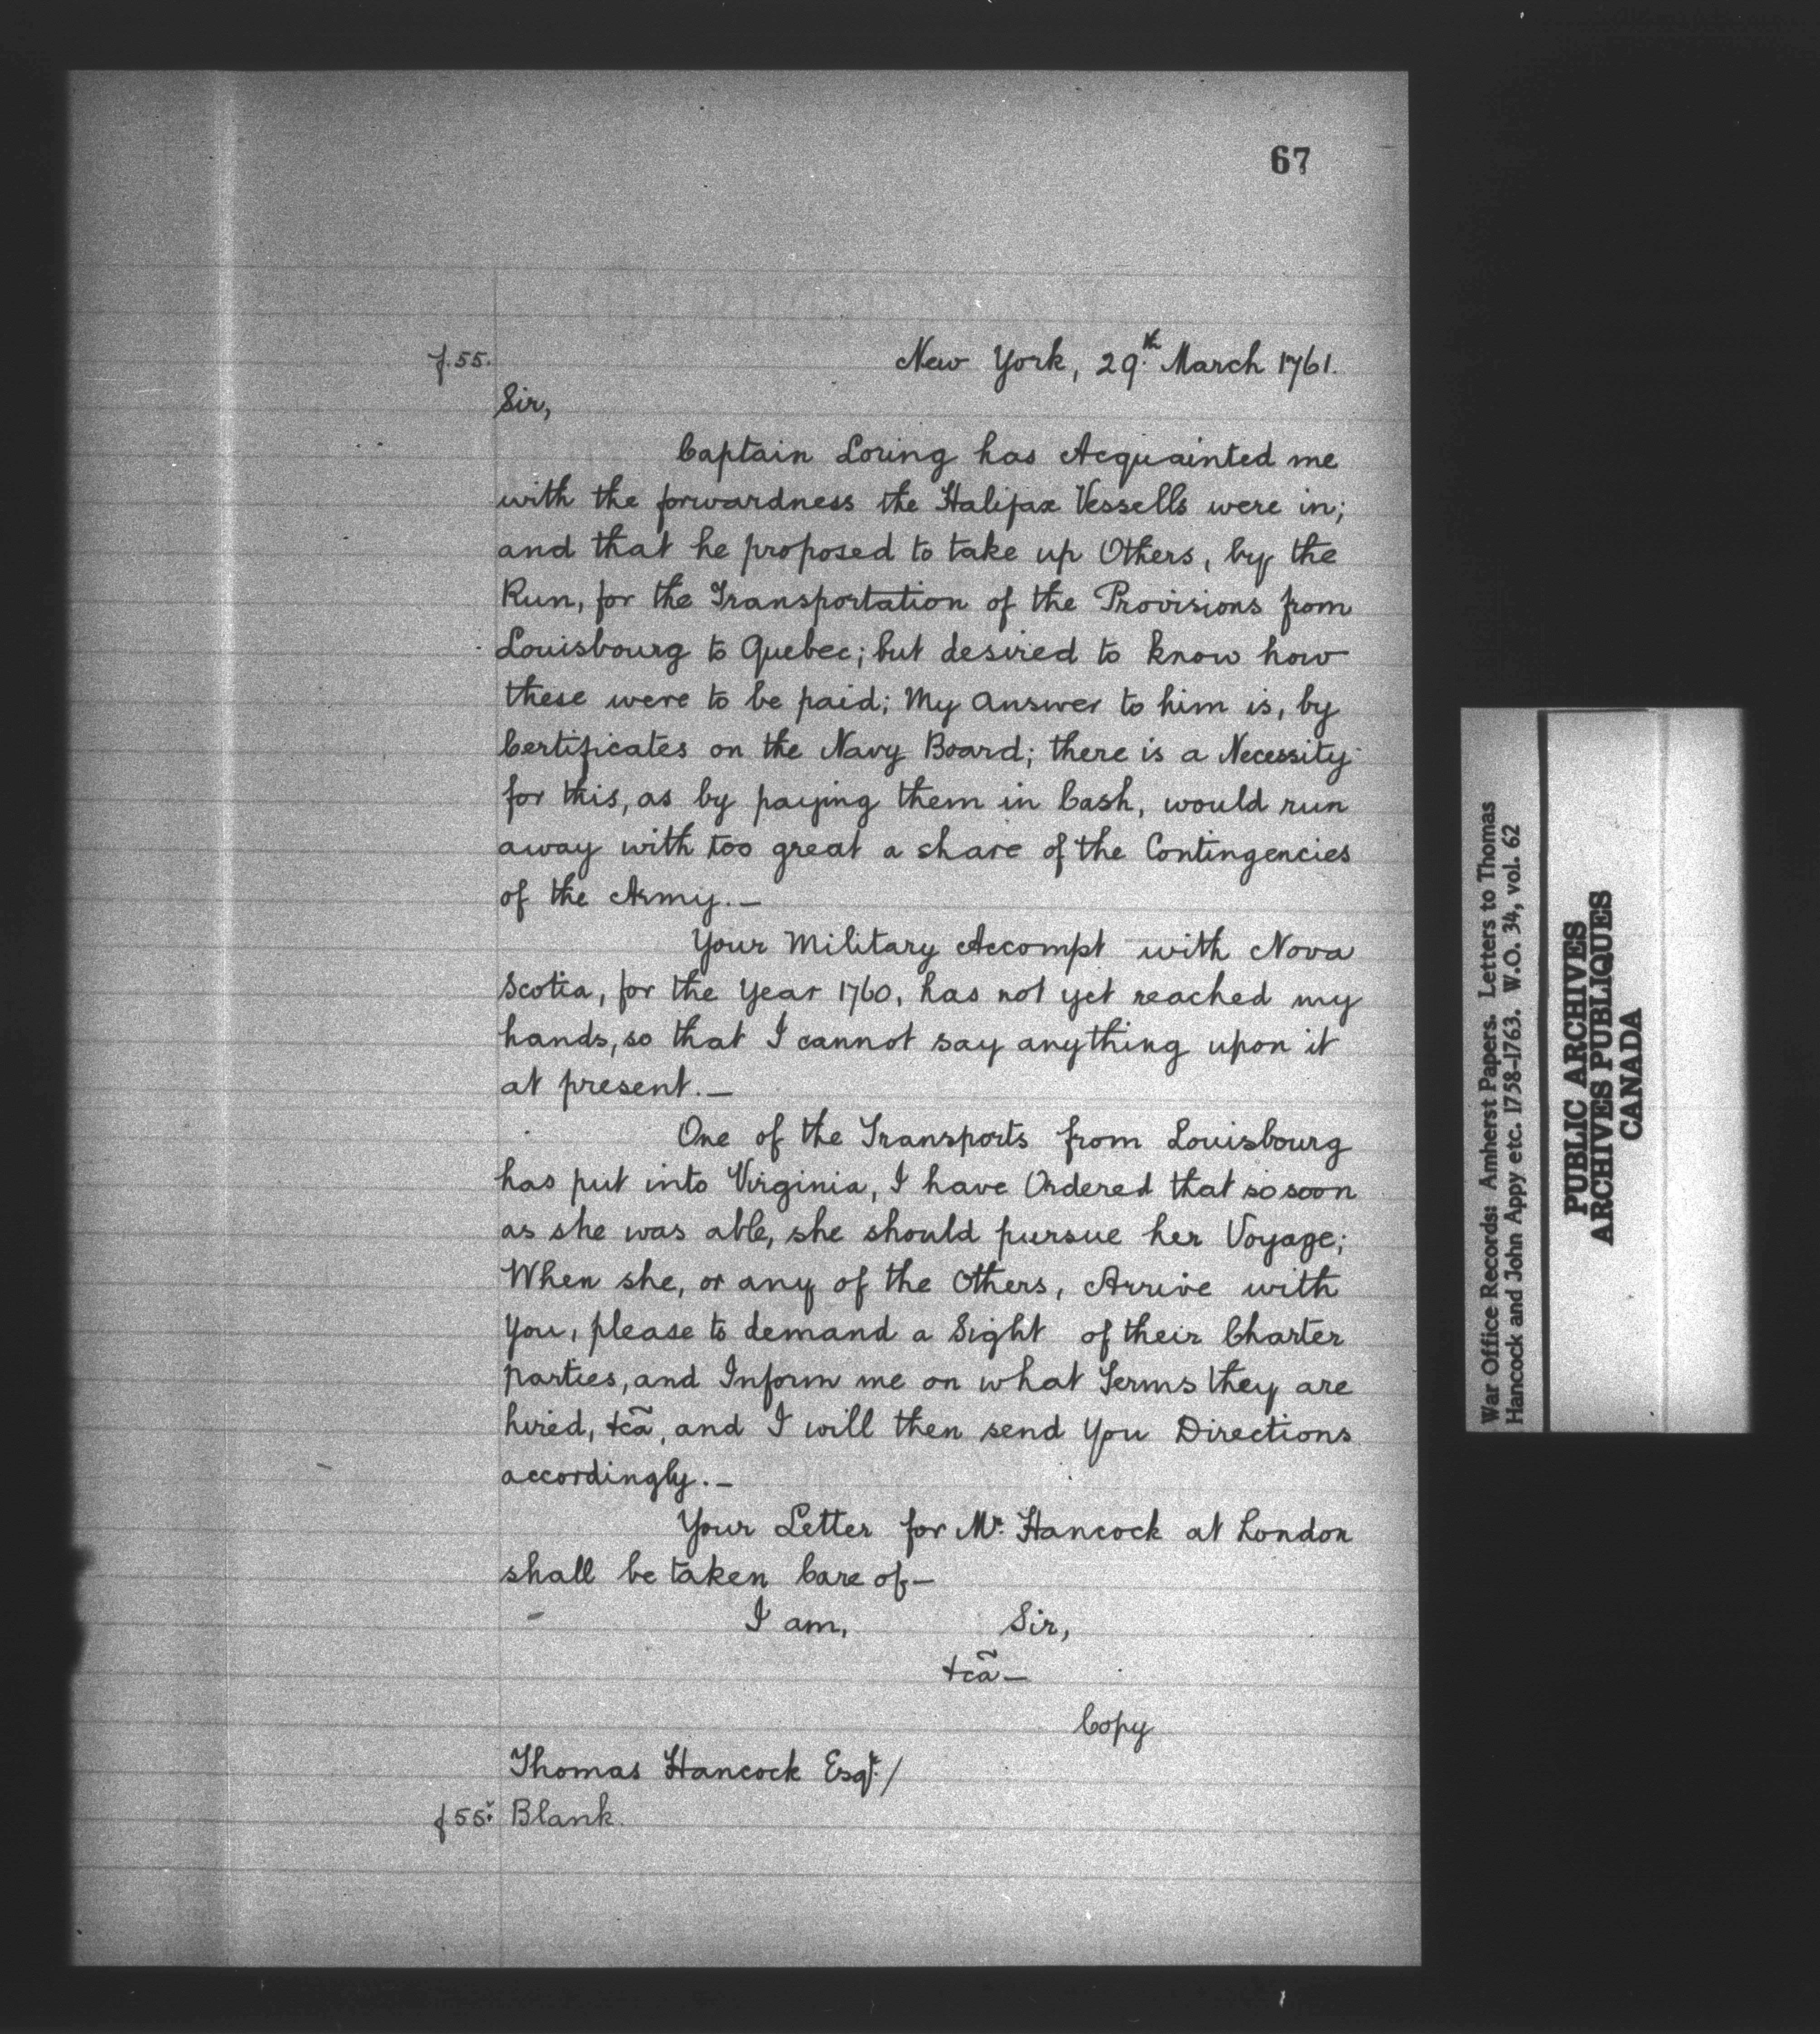 67
f. 55.
New York, 29th March 1761.
Sir,
Captain Loring has Acquainted me
with the forwardness the Halifax Vessells were in;
and that he proposed to take up Others, by the
Run, for the Transportation of the Provisions from
Louisbourg to Quebec; but desired to know how
these were to be paid; My answer to him is, by
Certificates on the Navy Board; there is a Necessity
for this, as by paying them in Cash, would run
away with too great a share of the Contingencies
of the Army.—
Your Military Accompt with Nova
Scotia, for the Year 1760, has not yet reached my
hands, so that I cannot say anything upon it
at present.—
One of the Transports from Louisbourg
has put into Virginia, I have Ordered that so soon
as she was able, she should pursue her Voyage;
When she, or any of the Others, Arrive with
You, please to demand a Sight of their Charter
parties, and Inform me on what Terms they are
hired, &cã, and I will then send You Directions
accordingly.—
Your Letter for Mr. Hancock at London
shall be taken Care of—
I am, Sir,
&cã—
Copy
Thomas Hancock Esqr./
f 55v. Blank.
War Office Records: Amherst Papers. Letters to Thomas
Hancock and John Appy etc. 1758-1763. W.O. 34, vol. 62
PUBLIC ARCHIVES
ARCHIVES PUBLIQUES
CANADA